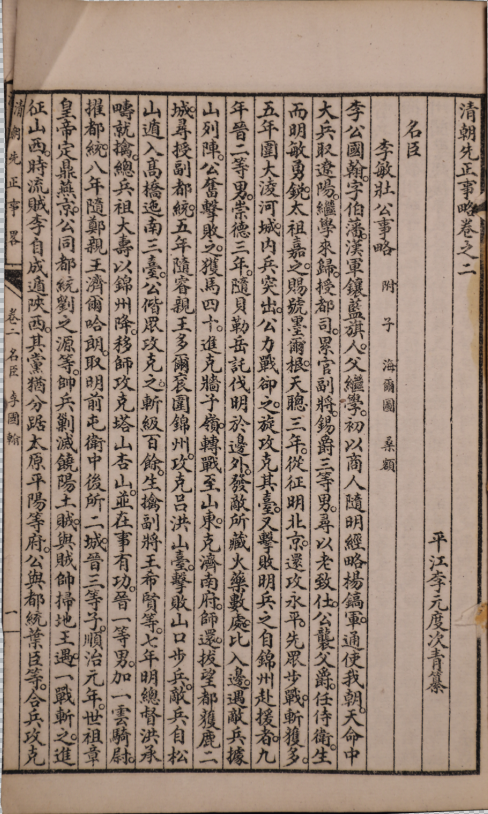 清朝先正事略卷之二
平江李元度次青纂
名臣
李敏壯公事略 附 子 海爾圖 桑額
李公國翰字伯藩漢軍鑲藍旗人父繼學初以商人隨明經略楊鎬軍通使我朝天命中
大兵取遼陽繼學來歸授都司累官副將錫爵三等男尋以老致仕公襲父爵任侍衛生
而明敏勇銳太祖嘉之賜號墨爾根天聰三年從征明北京還攻永平先眾步戰斬獲多
五年圍大淩河城內兵突出公力戰卻之旋攻克其臺又擊敗明兵之自錦州赴援者九
年晉二等男崇德三年隨貝勒岳託伐明於邊外發敵所藏火藥數處比入邊遇敵兵據
山列陣公奮擊敗之獲馬四十進克牆子嶺轉戰至山東克濟南府師還拔望都獲鹿二
城尋授副都統五年隨睿親王多爾袞圍錦州攻克呂洪山臺擊敗山口步兵敵兵自松
山遁入高橋迤南三臺公偕眾攻克之斬級百餘生擒副將王希賢等七年明總督洪承
疇就擒總兵祖大壽以錦州降移師攻克塔山杏山並在事有功晉一等男加一雲騎尉
擢都統八年隨鄭親王濟爾哈朗取明前屯衛中後所二城晉三等子順治元年世祖章
皇帝定鼎燕京公同都統劉之源等帥兵剿滅饒陽土賊與賊帥掃地王遇一戰斬之進
征山西時流賊李自成遁陝西其黨猶分踞太原平陽等府公與都統葉臣等合兵攻克
清朝先正事畧 卷二 名臣 李國翰 一